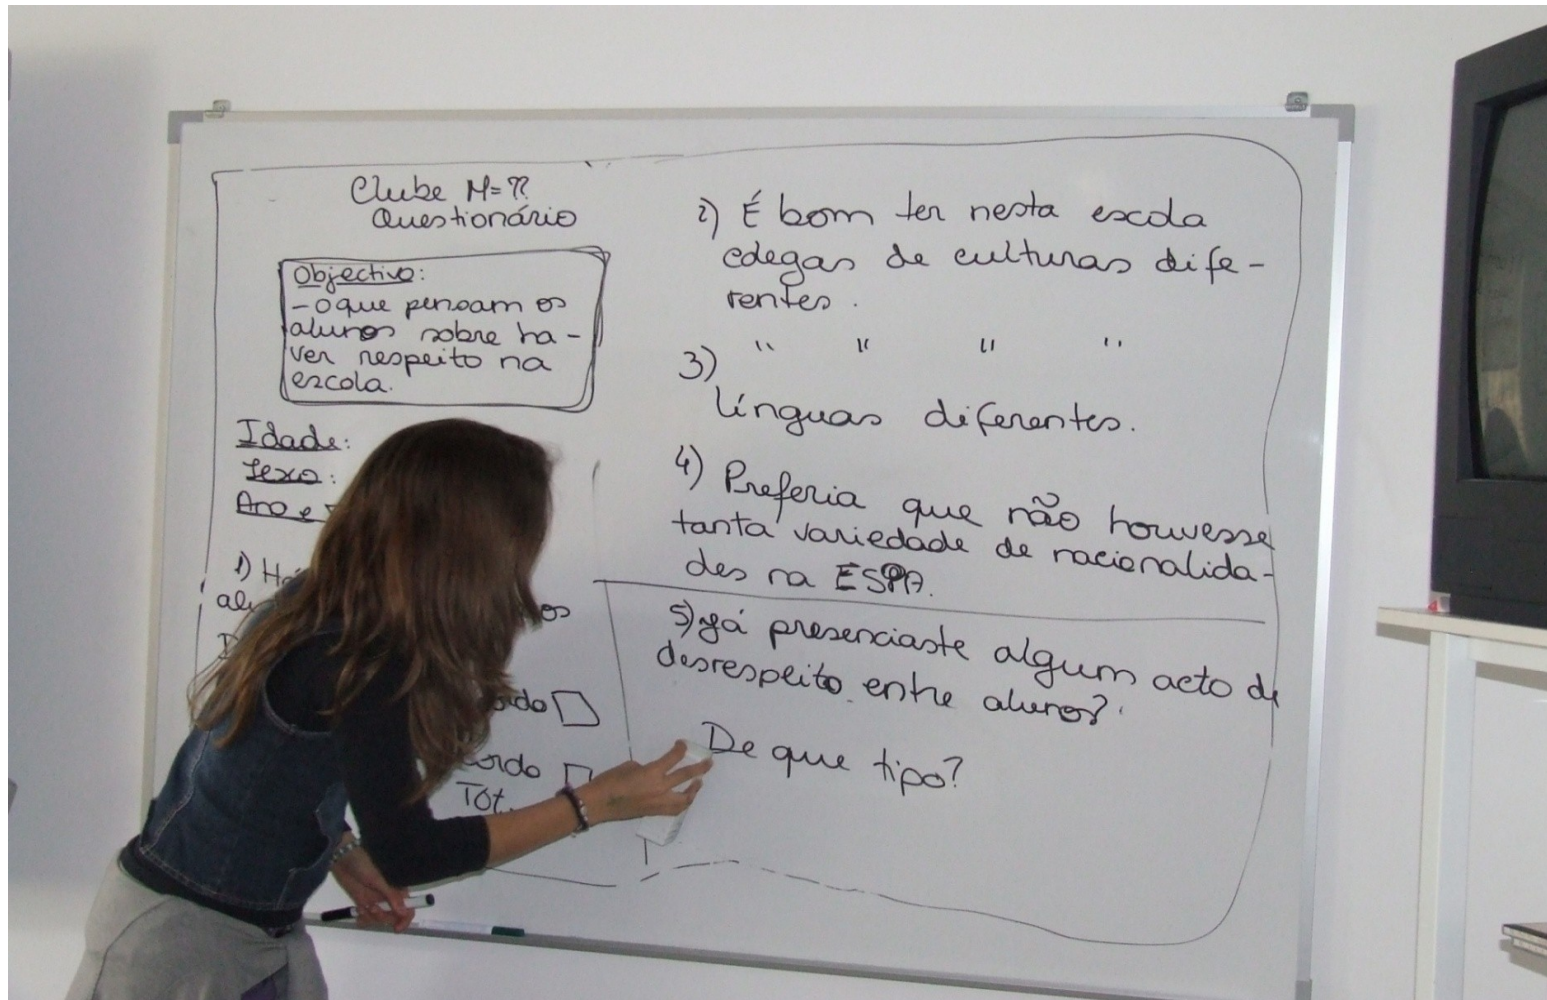 Clube M=?
Questionário
Objectivo:
- o que pensam os
alunos sobre ha-
ver respeito na
escola.
Idade:
Sexo:
Ano e
1)
os
ordo
cordo
Tot.
2) É bom ter nesta escola
colegas de culturas dife-
rentes.
3) " " " "
línguas diferentes.
4) Preferia que não houvesse
tanta variedade de nacionalida-
des na ESPA.
5) Já presenciaste algum acto de
desrespeito entre alunos?
De que tipo?